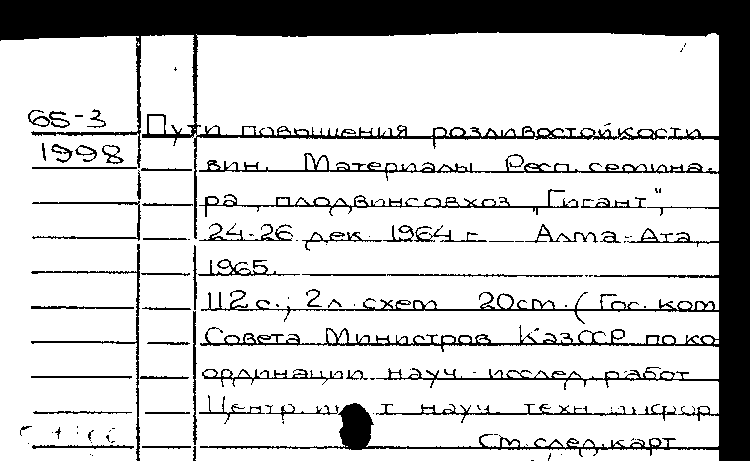 65-3
1998
Пути повышения розливостойкости
вин. Материалы Респ. семина-
ра, плодвинсовхоз „Гигант",
24-26 дек. 1964 г. Алма-Ата,
1965.
112 с.; 2 л. схем 20 см. (Гос. ком
Совета Министров КазССР по ко
ординации науч.-исслед. работ
Центр. ин т науч. техн. информ
См. след. карт